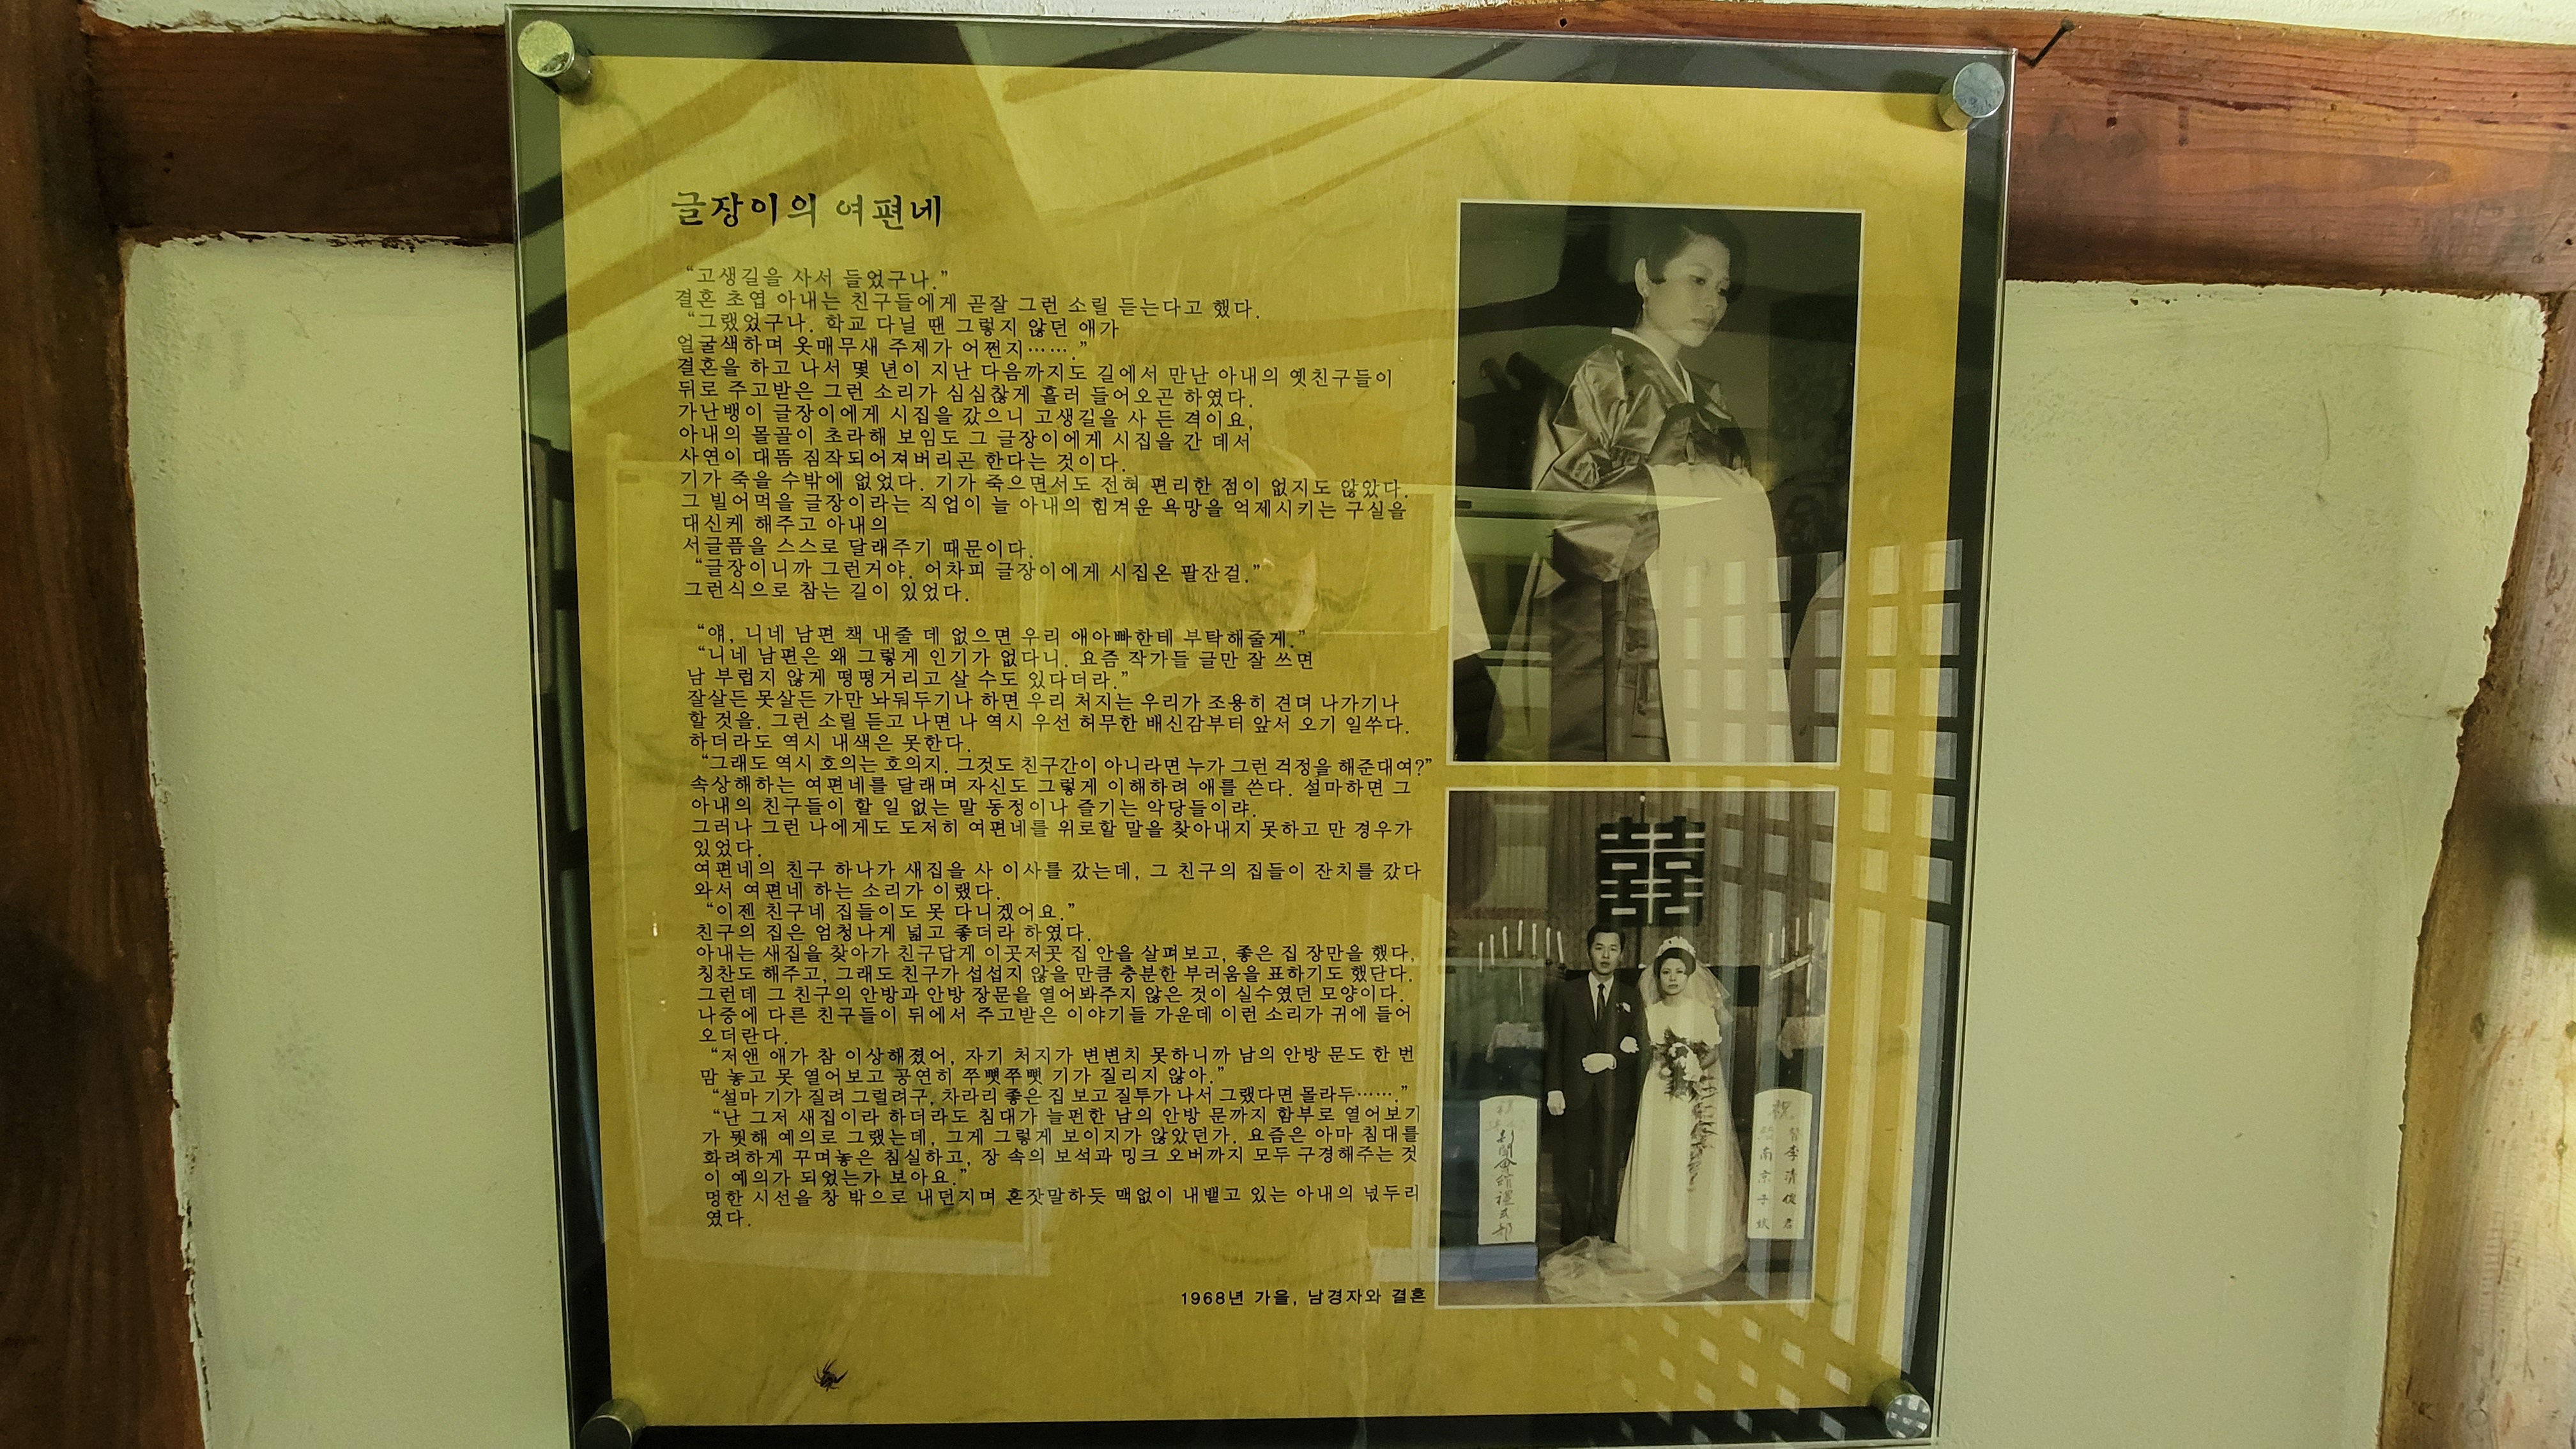 글장이의 여편네
“고생길을 사서 들었구나.”
결혼 초엽 아내는 친구들에게 곧잘 그런 소릴 듣는다고 했다.
“그랬었구나. 학교 다닐 땐 그렇지 않던 애가
얼굴색하며 옷매무새 주제가 어쩐지…….”
결혼을 하고 나서 몇 년이 지난 다음까지도 길에서 만난 아내의 옛친구들이
뒤로 주고받은 그런 소리가 심심찮게 흘러 들어오곤 하였다.
가난뱅이 글장이에게 시집을 갔으니 고생길을 사 든 격이요,
아내의 몰골이 초라해 보임도 그 글장이에게 시집을 간 데서
사연이 대뜸 짐작되어져버리곤 한다는 것이다.
기가 죽을 수밖에 없었다. 기가 죽으면서도 전혀 편리한 점이 없지도 않았다.
그 빌어먹을 글장이라는 직업이 늘 아내의 힘겨운 욕망을 억제시키는 구실을
대신케 해주고 아내의
서글픔을 스스로 달래주기 때문이다.
“글장이니까 그런거야. 어차피 글장이에게 시집온 팔잔걸.”
그런식으로 참는 길이 있었다.
“얘, 니네 남편 책 내줄 데 없으면 우리 애아빠한테 부탁해줄게.”
“니네 남편은 왜 그렇게 인기가 없다니. 요즘 작가들 글만 잘 쓰면
남 부럽지 않게 떵떵거리고 살 수도 있다더라.”
잘살든 못살든 가만 놔둬두기나 하면 우리 처지는 우리가 조용히 견뎌 나가기나
할 것을. 그런 소릴 듣고 나면 나 역시 우선 허무한 배신감부터 앞서 오기 일쑤다.
하더라도 역시 내색은 못한다.
“그래도 역시 호의는 호의지. 그것도 친구간이 아니라면 누가 그런 걱정을 해준대여?”
속상해하는 여편네를 달래며 자신도 그렇게 이해하려 애를 쓴다. 설마하면 그
아내의 친구들이 할 일 없는 말 동정이나 즐기는 악당들이랴.
그러나 그런 나에게도 도저히 여편네를 위로할 말을 찾아내지 못하고 만 경우가
있었다.
여편네의 친구 하나가 새집을 사 이사를 갔는데, 그 친구의 집들이 잔치를 갔다
와서 여편네 하는 소리가 이랬다.
“이젠 친구네 집들이도 못 다니겠어요.”
친구의 집은 엄청나게 넓고 좋더라 하였다.
아내는 새집을 찾아가 친구답게 이곳저곳 집 안을 살펴보고, 좋은 집 장만을 했다,
칭찬도 해주고, 그래도 친구가 섭섭지 않을 만큼 충분한 부러움을 표하기도 했단다.
그런데 그 친구의 안방과 안방 장문을 열어봐주지 않은 것이 실수였던 모양이다.
나중에 다른 친구들이 뒤에서 주고받은 이야기들 가운데 이런 소리가 귀에 들어
오더란다.
“저앤 애가 참 이상해졌어, 자기 처지가 변변치 못하니까 남의 안방 문도 한 번
맘 놓고 못 열어보고 공연히 쭈뼛쭈뼛 기가 질리지 않아.”
“설마 기가 질려 그럴려구, 차라리 좋은 집 보고 질투가 나서 그랬다면 몰라두…….”
“난 그저 새집이라 하더라도 침대가 늘펀한 남의 안방 문까지 함부로 열어보기
가 뭣해 예의로 그랬는데, 그게 그렇게 보이지가 않았던가. 요즘은 아마 침대를
화려하게 꾸며놓은 침실하고, 장 속의 보석과 밍크 오버까지 모두 구경해주는 것
이 예의가 되었는가 보아요.”
멍한 시선을 창 밖으로 내던지며 혼잣말하듯 맥없이 내뱉고 있는 아내의 넋두리
였다.
1968년 가을, 남경자와 결혼
囍
祝
李清俊君
南京子